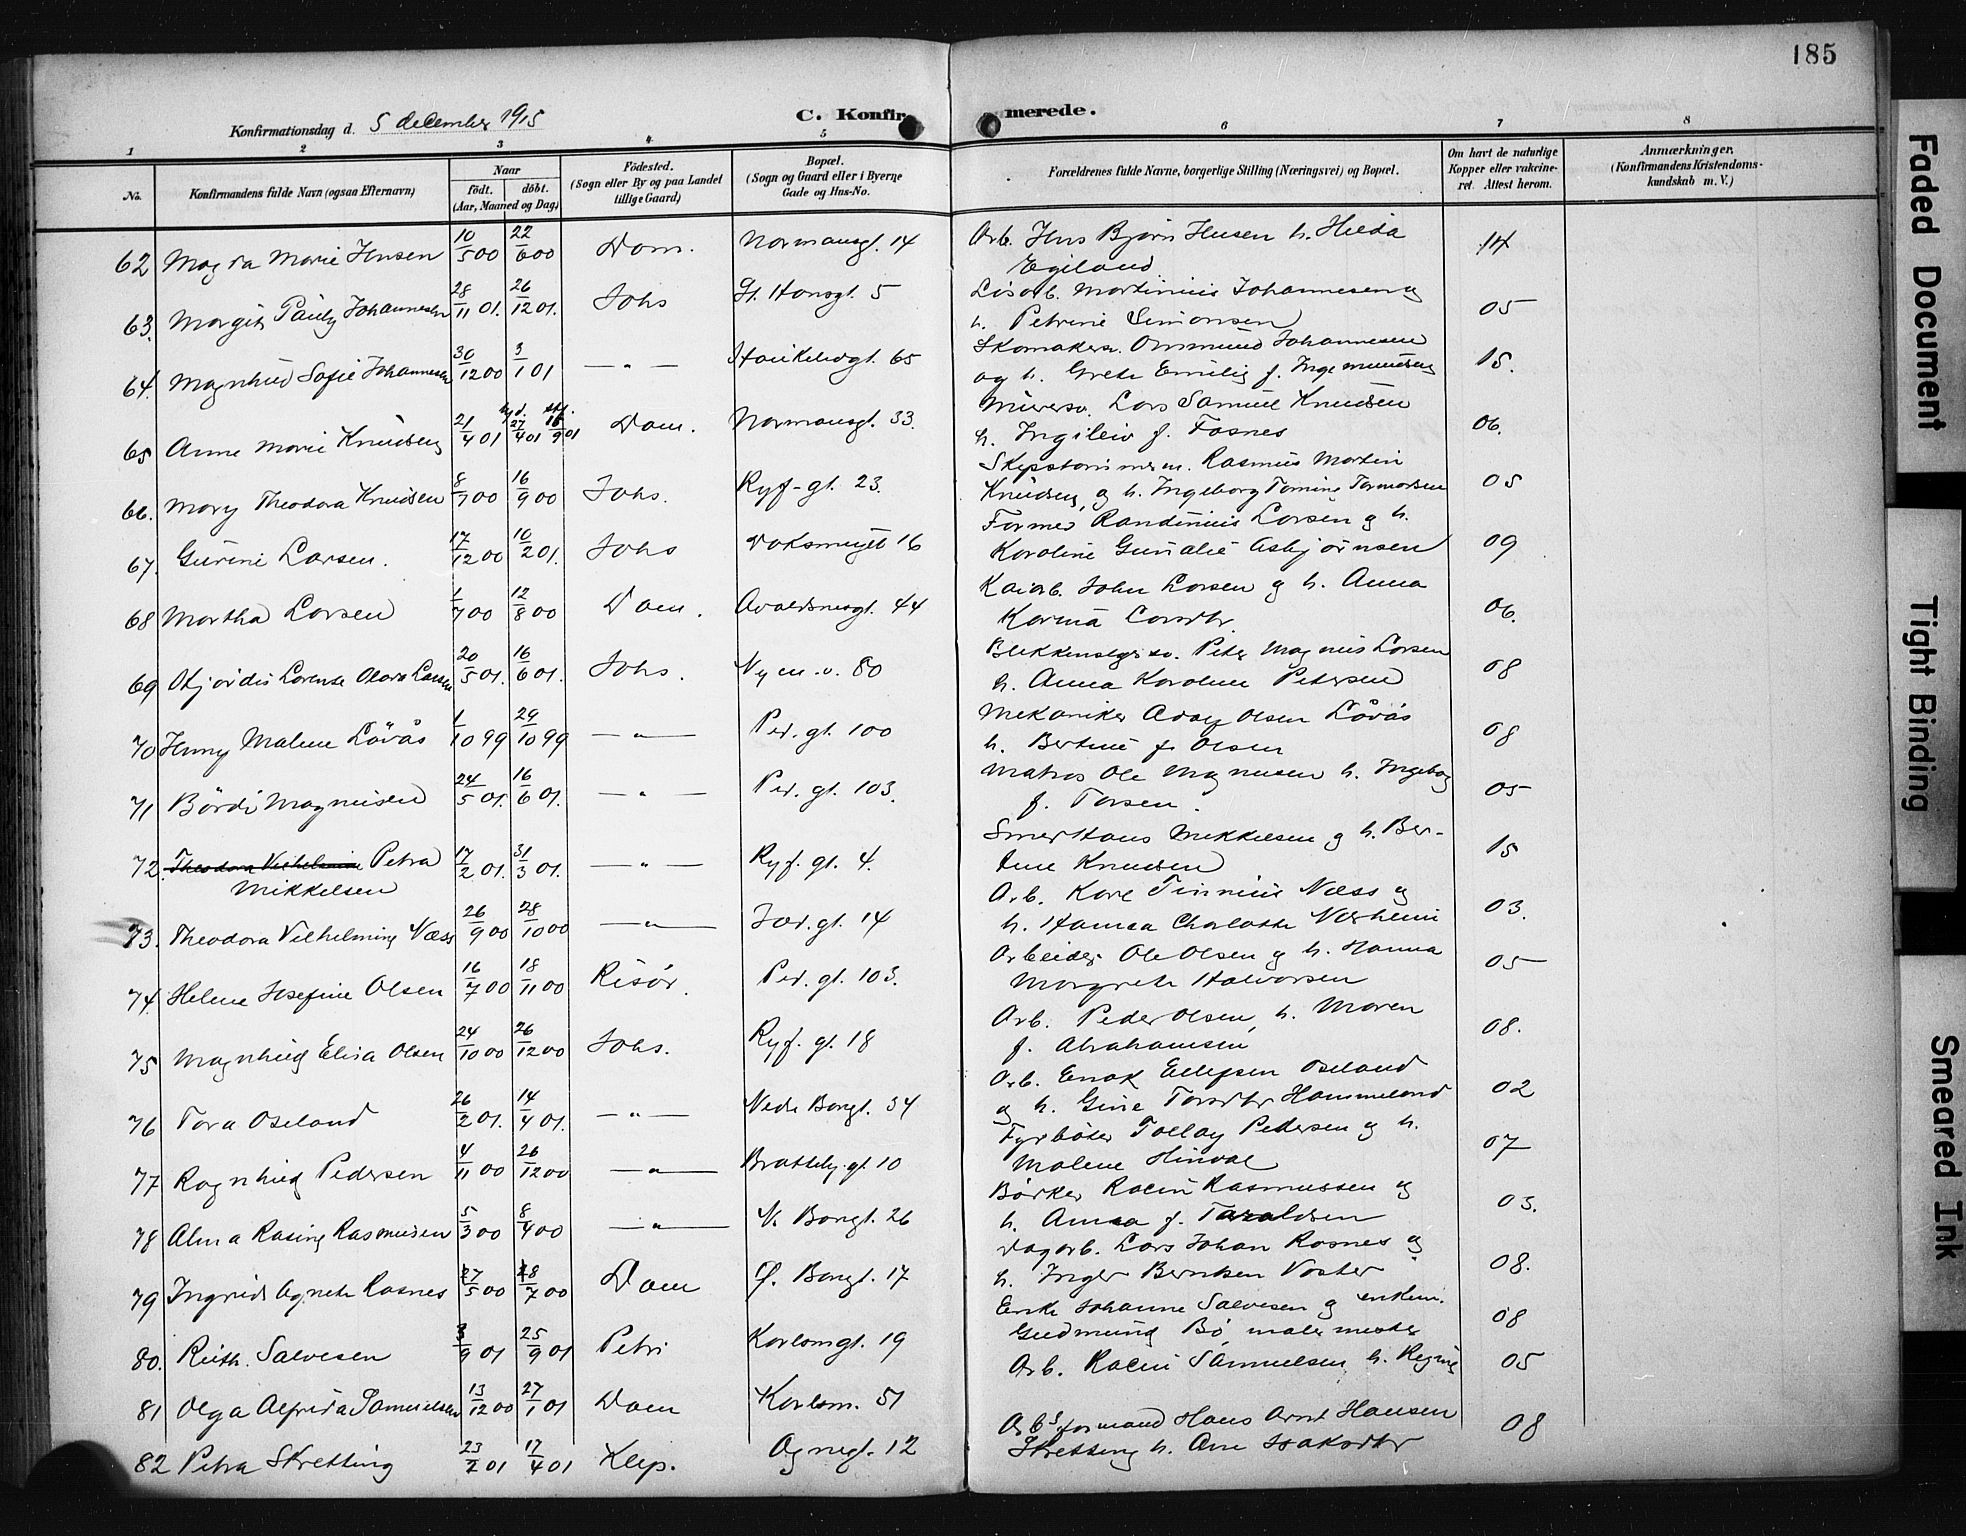 185
Konfirmationsdag d. 5 december 1915
C. Konfirmerede.
1 2 3 4 5 6 7 8
No. Konfirmandens fulde Navn (ogsaa Efternavn) Naar födt. döbt. (Aar, Maaned og Dag) Födested. (Sogn eller By og paa Landet tillige Gaard) Bopæl. (Sogn og Gaard eller i Byerne Gade og Hus-No. Forældrenes fulde Navne, borgerlige Stilling (Næringsvei) og Bopæl. Om havt de naturlige Kopper eller vakcineret. Attest herom. Anmærkninger. (Konfirmandens Kristendomskundskab m. V.)
62 Magda Marie Jensen 10/5 00 22/6 00 Dom. Normansgt. 14 Arb. Jens Bjørn Jensen h. Hilda Egeland 14
63. Margit Pauly Johannesen 28/11 01. 26/12 01. Johs St. Hansgt. 5 Løsarb. Martinius Johannesen og h. Petrine Simonsen 05
64. Magnhild Sofie Johannesen 30/12 00 3/1 01 — " — Haukeligt. 65 Skomakersv. Ommund Johannesen og h. Grete Emilie f. Ingemundsen 15.
65 Anne Marie Knudsen 21/4 01 27/4 01 16/9 01 Dom. Normansgt. 33. Murersv. Lars Samuel Knudsen h. Ingileiv f. Fosnes 06.
66. Mary Theodora Knudsen 8/7 00 16/9 00 Johs. Ryf-gt. 23. Skipstømmerm. Rasmus Martin Knudsen, og h. Ingeborg Tomine Tormodsen 05
67. Gurine Larsen. 17/12 00 10/2 01. Johs 16 Former Randinius Larsen g h. Karoline Gunalie Asbjørnsen 09
68 Martha Larsen 1/7 00 12/8 00 Dom. Avaldsnesgt. 44 Kaiarb. John Larsen g h. Anna Karina Larsdtr. 06.
69 Hjørdis Lorense Olava Larsen 20/5 01. 16/6 01. Johs. Nym.v. 80 Blikkenslgrsv. Peter Magnus Larsen h. Anna Karoline Petersen 08
70 Jenny Malene Løvås 1/10 99 29/10 99 — " — Ped. gt. 100 Mekaniker Aday Olsen Løvås h. Bertine f. Olsen 08
71 Bordi Magnusen 24/5 01. 16/6 01. — " — Ped. gt. 103. Matros Ole Magnusen h. Ingeborg f. Torsen. 05
72. Theodora Vilhelmine Petra Mikkelsen 17/2 01. 31/3 01. — " — Ryf. gt. 4. Smed Hans Mikkelsen g h. Bertine Knudsen 15
73. Theodora Vilhelmine Næss 26/9 00 28/10 00 — " — Jæd. gt. 14 Arb. Kare Tinnius Næss og h. Hanna Charlotte Nærheim 03.
74. Helene Josefine Olsen 16/7 00 18/11 00 Risör. Ped. gt. 103. Arbeider Ole Olsen g h. Hanna Margrete Halvorsen 05
75 Magnhild Elisa Olsen 24/10 00 26/12 00 Johs. Ryf. gt. 18 Arb. Peder Olsen, h. Maren f. Abrahamsen 08.
76 Tora Oseland 26/2 01. 14/4 01. — " — Nedre Bangt. 34 Arb. Enok Ellefsen Oseland og h. Gine Torsdtr Hammeland 02
77 Ragnhild Pedersen 4/11 00 26/12 00 — " — Brattebj. gt 10 Fyrbøter Tollag Pedersen g h. Malene Hindal 07
78 Alma Rasine Rasmussen 5/3 00 8/4 00 — " — N. Bangt. 26 Bødker Racin Rasmussen og h. Anna f. Taraldsen 03.
79 Ingrid Agnete Rosnes 27/5 00 18/7 00 Dom Ø. Bangt. 17 Dagarb. Lars Johan Rosnes og h. Inger Berntsen Voster 08.
80. Ruth Salvesen 3/9 01 25/9 01 Petri Karlsmgt. 19 Enke Johanne Salvesen g enkem. Gudmund Bø, malermester 08
81 Olga Alfrida Samuelsen 13/12 00 27/1 01 Dom Karlsm. 51 Arb. Racin Samuelsen, h. Regine 05
82 Petra Skretting 23/2 01 17/4 01 Klep. Agnegt. 12 Arbsformand Hans Arnt Hansen Skretting h. Ane Isaksdtr 08
Faded Document
Tight Binding
Smeared Ink